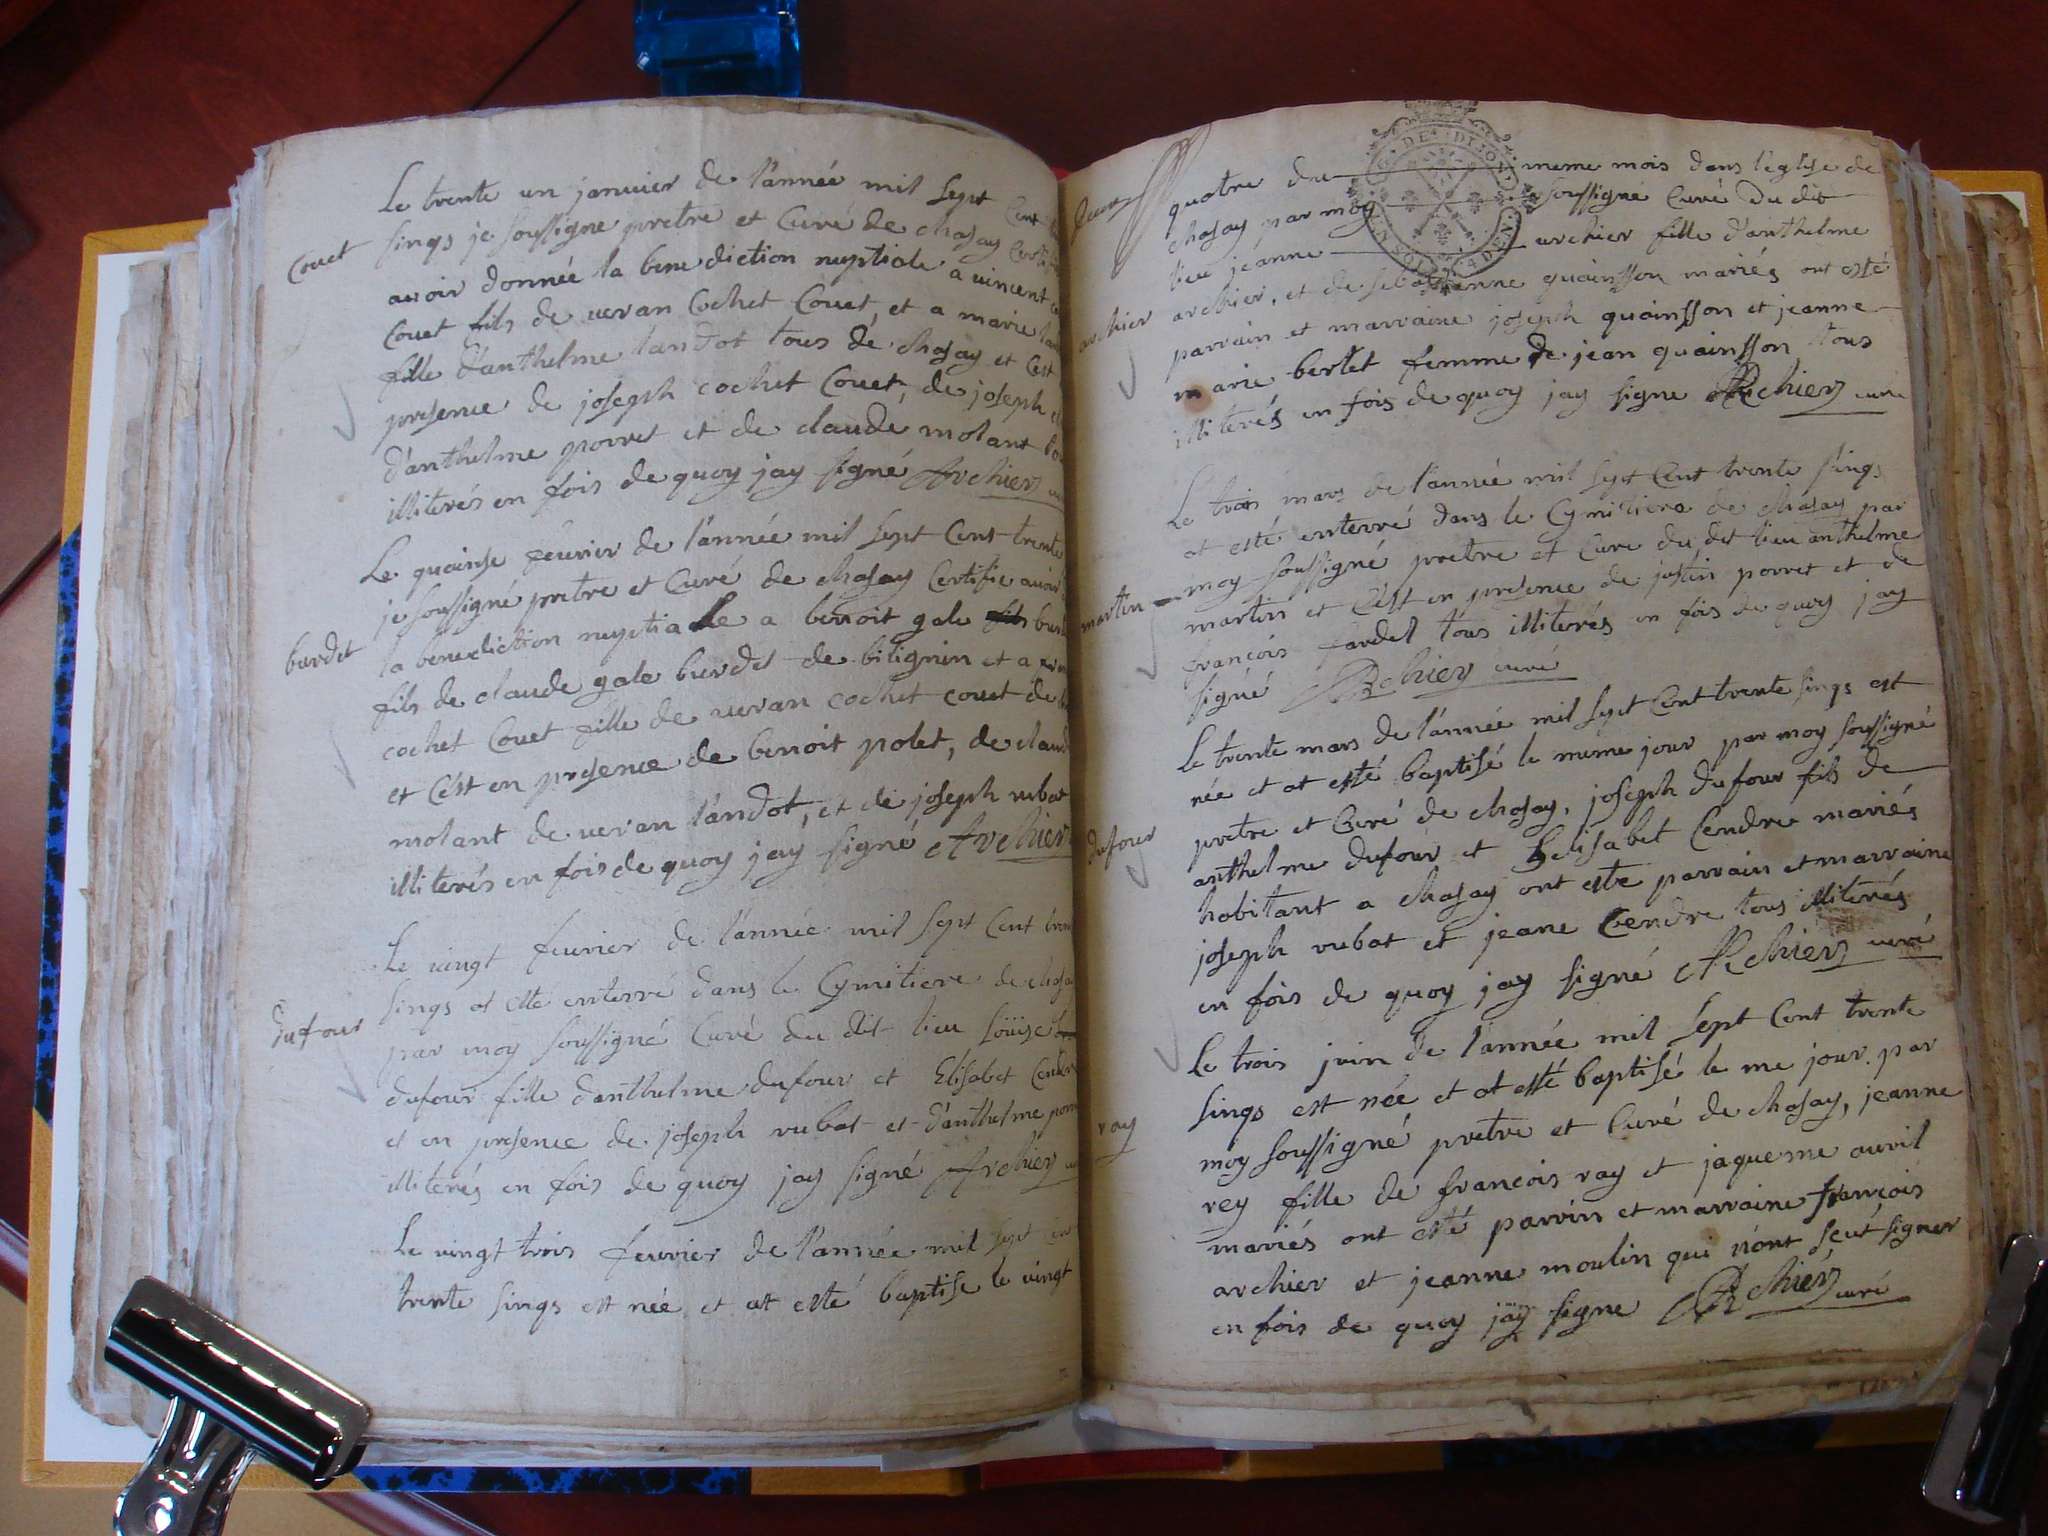 Le trente un janvier de l'année mil sept Cent
Couet
sings je soussigne pretre et Curé de chasay Certifie
avoir donnée la benediction nuptiale a vincent
Couet fils de veran Cochet Couet, et a marie
fille d'anthelme landot tous de chasay et Cest
presence de joseph cochet Couet, de joseph
d'anthelme porret et de claude molant
illiterés en fois de quoy jay signé Archier
Le quainse feuvrier de l'année mil sept Cent trente
je soussigné pretre et Curé de chasay Certifie avoir
burdet
la benediction nuptiale a benoit gale
fils de claude gale burdet de bilignin et a
cochet Couet fille de veran cochet couet de
et Cest en presence de benoit polet, de claude
molant de veran landot, et de joseph rubat
illiterés en fois de quoy jay signé Archier
Le vingt feuvrier de l'année mil sept Cent
sings at esté enterré dans le Cymitiere de
dufour
par moy soussigné Curé du dit lieu
dufour fille d'anthelme dufour et Elisabet Cendre
et en presence de joseph rubat et d'anthelme
illiterés en fois de quoy jay signé Archier
Le vingt trois feuvrier de l'année mil sept
trente sings est née et at esté baptise le vingt
G. DE DIJON
quatre du meme mois dans l'eglise de
chasay par moy soussigné Curé du dit
lieu jeanne archier fille d'anthelme
archier
archier, et de sebastienne quainsson mariés ont esté
parrain et marraine joseph quainsson et jeanne
marie berlet femme de jean quainsson tous
illiterés en fois de quoy jay signe Archier curé
Le trois mars de l'année mil sept Cent trente sings
at esté enterré dans le Cymitiere de chasay par
moy soussigné pretre et Cure du dit lieu anthelme
martin
martin et C'est en presence de justin porret et de
françois fardel tous illiterés en fois de quoy jay
signé Archier curé
Le trente mars de l'année mil sept Cent trente sings est
née et at esté baptisé le meme jour par moy soussigné
pretre et Curé de chasay, joseph dufour fils de
dufour
anthelme dufour et Helisabet Cendre mariés
habitant a chasay ont este parrain et marraine
joseph rubat et jeane Cendre tous illiterés
en fois de quoy jay signé Archier curé
Le trois juin de l'année mil sept Cent trente
sings est née et at esté baptisé le me jour par
ray
moy soussigné pretre et Curé de chasay, jeanne
rey fille de francois ray et jaqueme avril
mariés ont esté parrin et marraine françois
archier et jeanne moulin qui n'ont sçut signer
en fois de quoy jay signe Archier curé